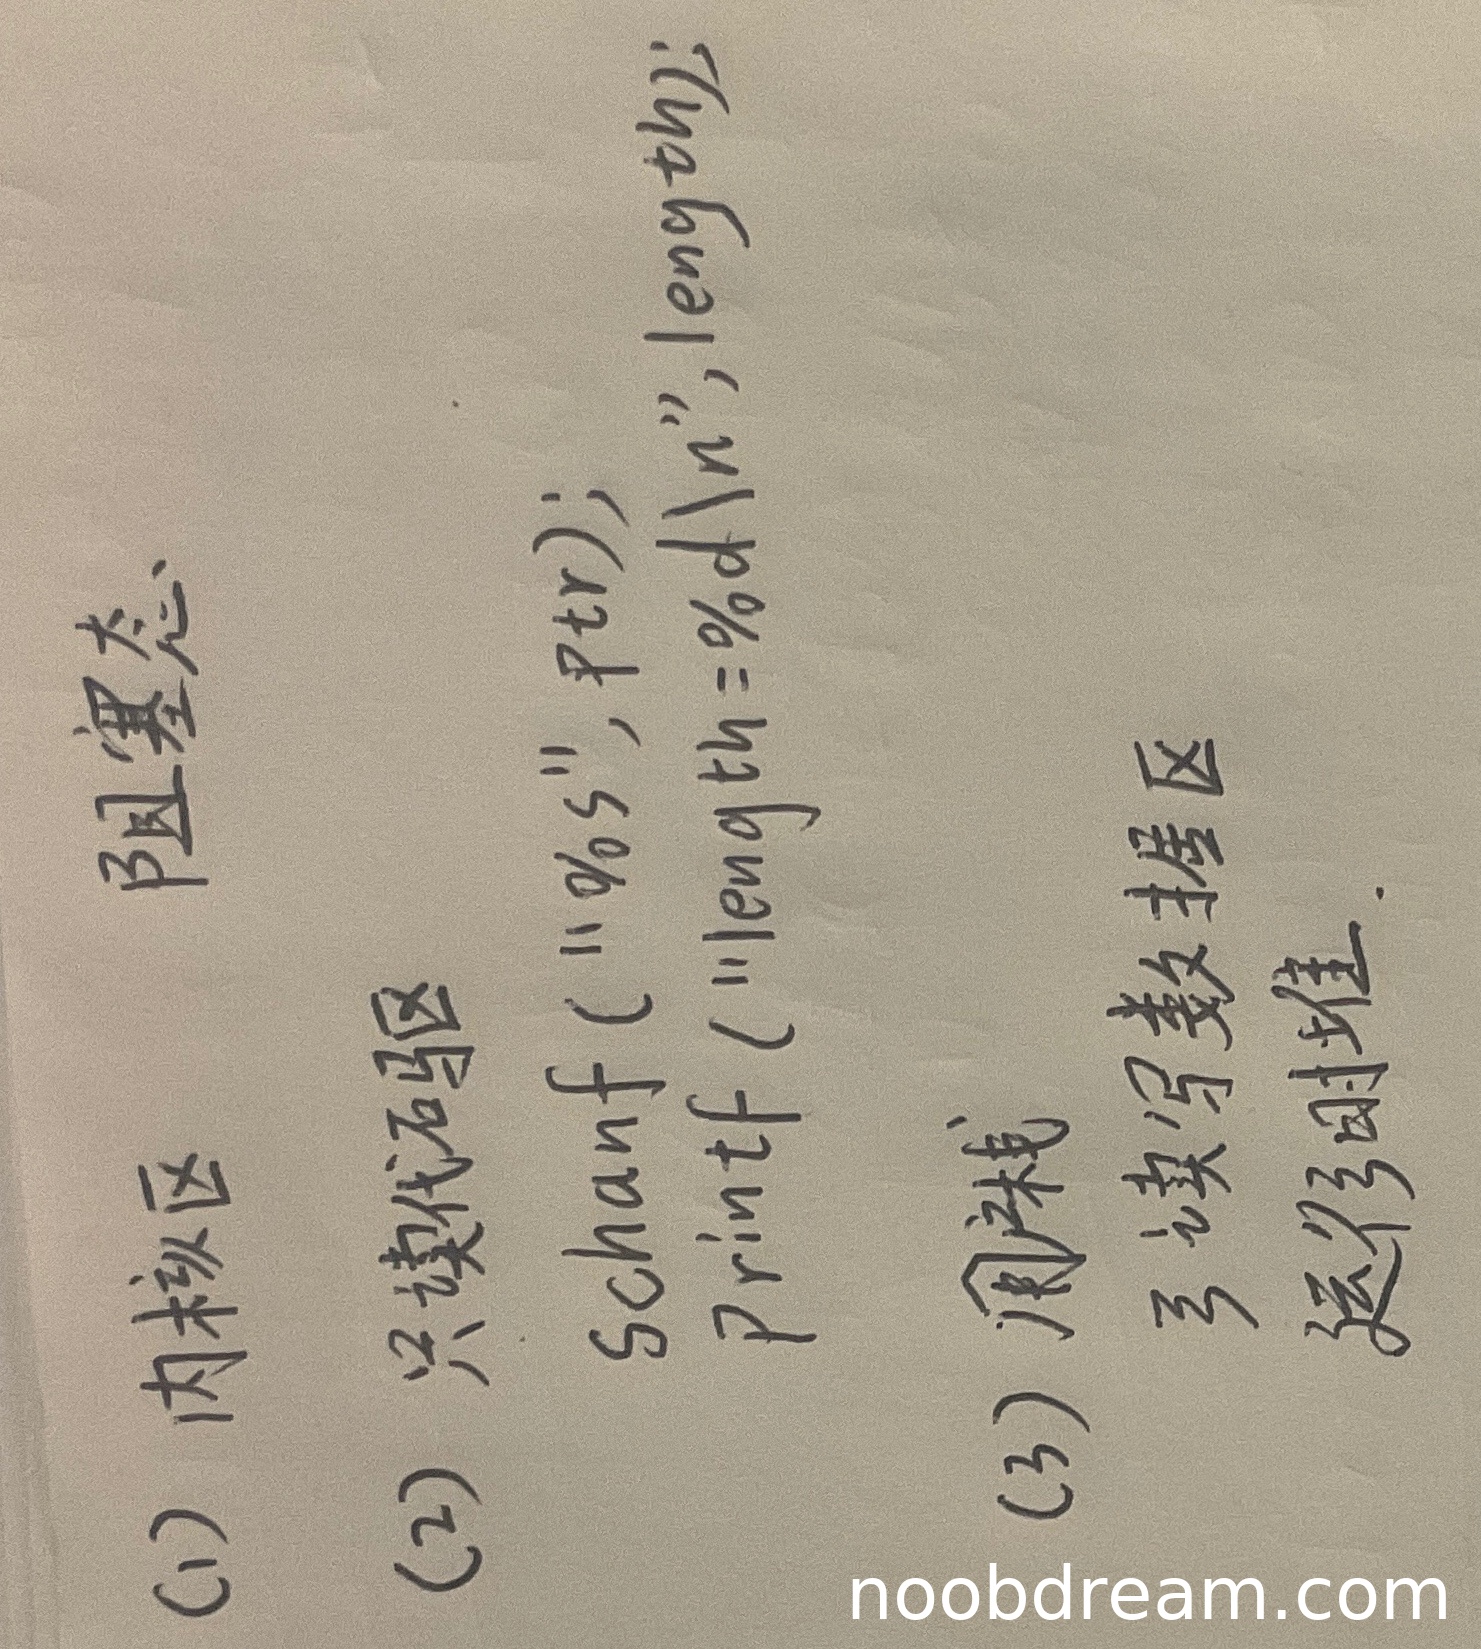 (1) 内核区 阻塞态、
(2) 只读代码区
schanf("%s", ptr);
printf("length=%d\n", length);
(3) 用户栈
可读写数据区
运行时堆.
noobdream.com